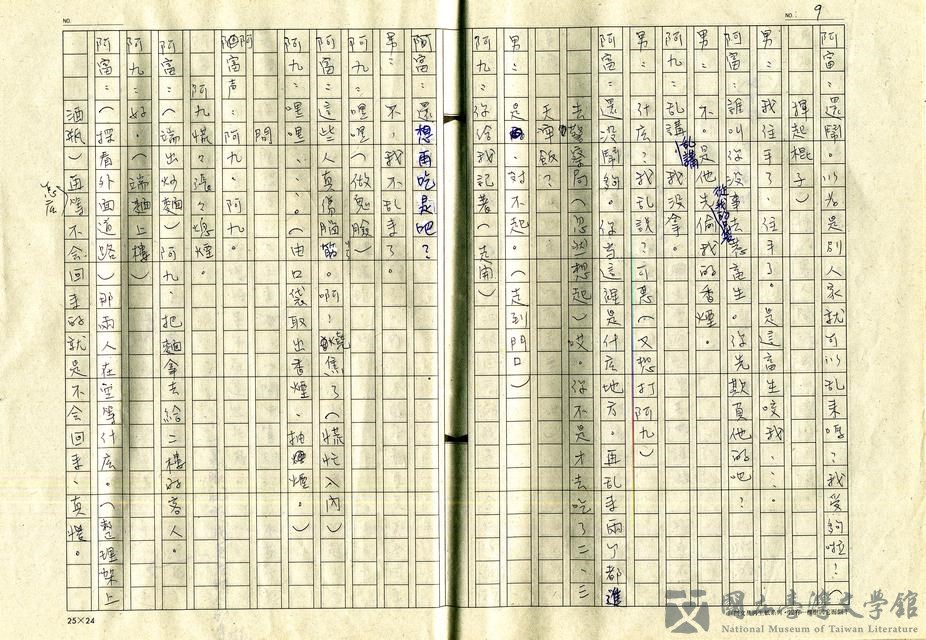 NO. 9
阿富：還鬧。以為是別人家就可以乱来嗎？我受夠啦！（
揮起棍子）
男：我住手了、住手了。是這畜生咬我……。
阿富：誰叫你没事去惹畜生。你先欺負他的吧？
不。是他先從我的偷我的香煙。
阿九：乱講乱講我没拿。
男：什広？我乱說？可惡（又想打阿九）
阿富：還没鬧夠。你当這裡是什広地方。再乱来兩个都進
去警察局（忽然想起）哎。你不是才去吃了二、三
天囉飯？
男：是、对不起。（走到門口）
阿九：你給我記著（走開）
阿富：還想再吃是吧？
男：不，我不乱来了。
阿九：嘿嘿（做鬼臉）
阿富：這些人真傷腦筋。啊！燒焦了（慌忙入內）
阿九：嘿嘿……（由口袋取出香煙、抽煙。）
間
阿富声：阿九、阿九。
阿九慌々張々熄煙。
阿富：（端出炒麵）阿九、把麵拿去給二樓的客人。
阿九：好。（端麵上樓）
阿富：（探看外面道路）那兩人在空等什広。（整理架上
酒瓶）再怎広等不会回来的就是不会回来、真怪。
NO.
25×24
國立臺灣文學館
National Museum of Taiwan Literature